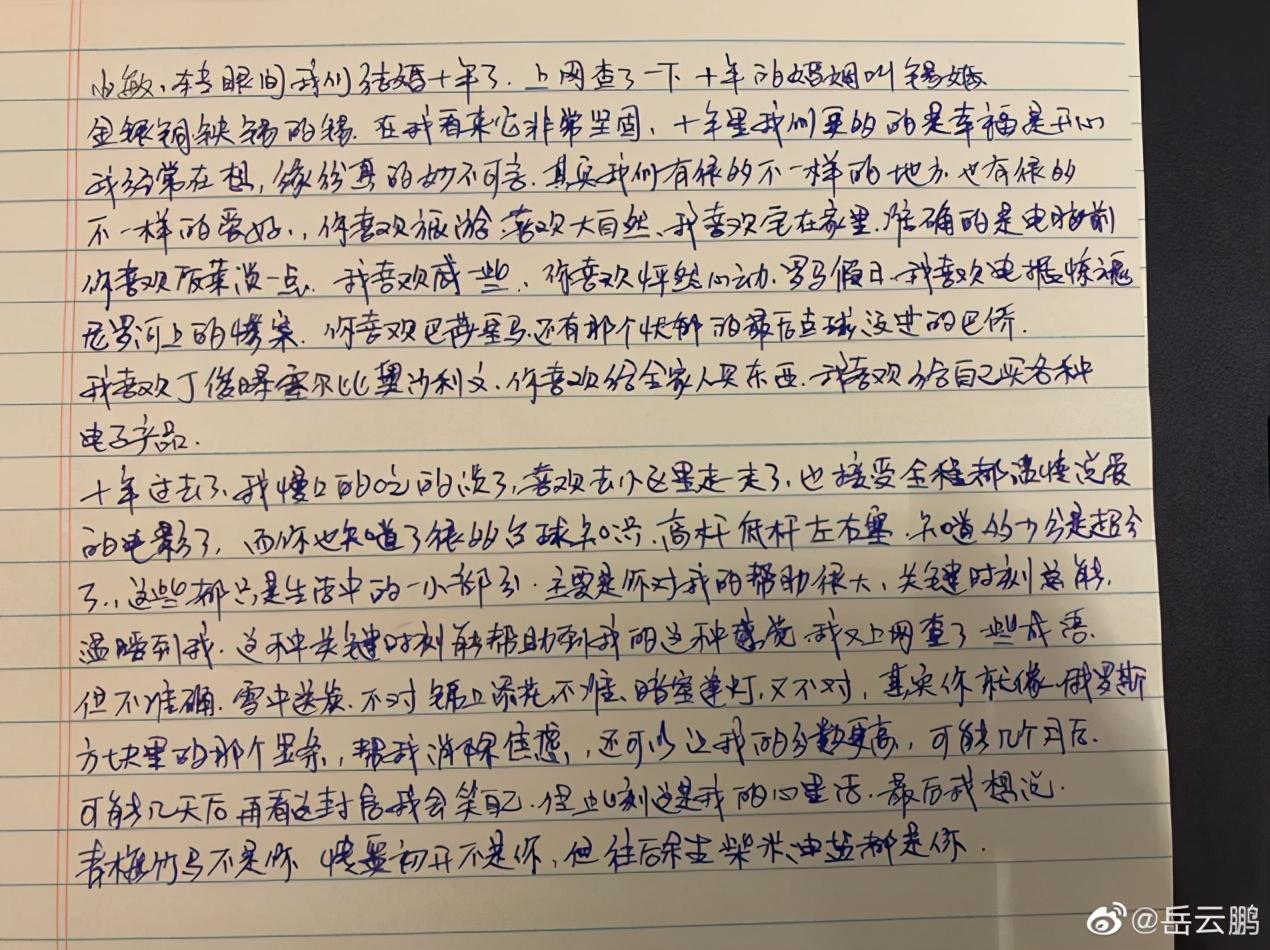 小敏、转眼间我们结婚十年了. 上网查了一下 十年的婚姻叫锡婚
金银铜铁锡的锡. 在我看来它非常坚固, 十年里我们更多的是幸福是开心
我经常在想, 缘份真的妙不可言. 其实我们有很多不一样的地方 也有很多
不一样的爱好., 你喜欢旅游. 喜欢大自然、我喜欢宅在家里. 准确的是电脑前
你喜欢饭菜淡一点. 我喜欢咸一些, 你喜欢怦然心动. 罗马假日. 我喜欢电锯惊魂
尼罗河上的惨案. 你喜欢巴萨皇马. 还有那个忧郁的最后点球没进的巴乔.
我喜欢丁俊晖塞尔比奥沙利文. 你喜欢给全家人买东西. 我喜欢给自己买各种
电子产品.
十年过去了. 我慢慢的吃的淡了, 喜欢去小区里走一走了, 也接受全程都温情说爱
的电影了, 而你也知道了很多台球知识. 高杆 低杆 左右塞. 知道多少分是超分
了., 这些都只是生活中的一小部分. 主要是你对我的帮助很大, 关键时刻总能,
温暖到我. 这种关键时刻能帮助到我的这种感觉. 我又上网查了一些成语.
但不准确. 雪中送炭. 不对 锦上添花 不准、暗室逢灯, 又不对, 其实你就像俄罗斯
方块里的那个竖条, 帮我消除焦虑, 还可以让我的分数更高, 可能几个月后.
可能几天后 再看这封信我会笑自己. 但此刻这是我的心里话. 最后我想说.
青梅竹马不是你 情窦初开不是你, 但往后余生 柴米油盐都是你.
@岳云鹏